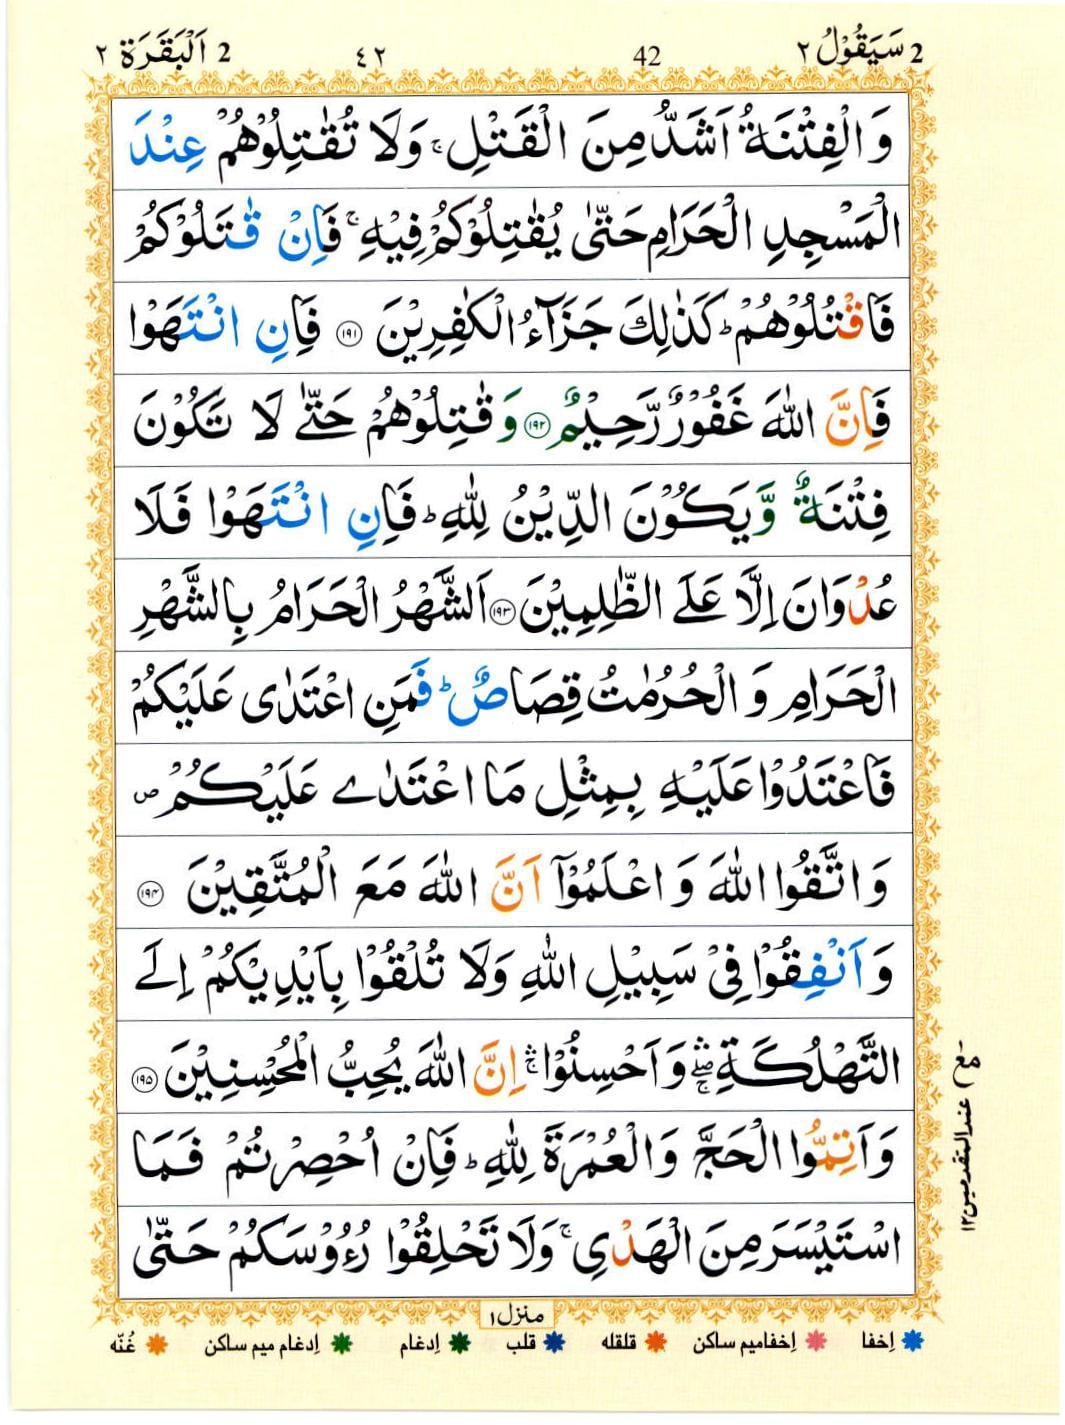 2 سَيَقُوْلُ ٢ 42 ٤٢ 2 اَلْبَقَرَة ٢
وَالْفِتْنَةُ اَشَدُّ مِنَ الْقَتْلِ ۚ وَلَا تُقٰتِلُوْهُمْ عِنْدَ
الْمَسْجِدِ الْحَرَامِ حَتّٰى يُقٰتِلُوْكُمْ فِيْهِ ۚ فَاِنْ قٰتَلُوْكُمْ
فَاقْتُلُوْهُمْ ؕ كَذٰلِكَ جَزَآءُ الْكٰفِرِيْنَ ۝۱۹۱ فَاِنِ انْتَهَوْا
فَاِنَّ اللّٰهَ غَفُوْرٌ رَّحِيْمٌ ۝۱۹۲ وَقٰتِلُوْهُمْ حَتّٰى لَا تَكُوْنَ
فِتْنَةٌ وَّيَكُوْنَ الدِّيْنُ لِلّٰهِ ؕ فَاِنِ انْتَهَوْا فَلَا
عُدْوَانَ اِلَّا عَلَى الظّٰلِمِيْنَ ۝۱۹۳ اَلشَّهْرُ الْحَرَامُ بِالشَّهْرِ
الْحَرَامِ وَالْحُرُمٰتُ قِصَاصٌ ؕ فَمَنِ اعْتَدٰى عَلَيْكُمْ
فَاعْتَدُوْا عَلَيْهِ بِمِثْلِ مَا اعْتَدٰى عَلَيْكُمْ ۪
وَاتَّقُوا اللّٰهَ وَاعْلَمُوْۤا اَنَّ اللّٰهَ مَعَ الْمُتَّقِيْنَ ۝۱۹۴
وَاَنْفِقُوْا فِيْ سَبِيْلِ اللّٰهِ وَلَا تُلْقُوْا بِاَيْدِيْكُمْ اِلَى
التَّهْلُكَةِ ۛۖۚ وَاَحْسِنُوْا ۛۚ اِنَّ اللّٰهَ يُحِبُّ الْمُحْسِنِيْنَ ۝۱۹۵
وَاَتِمُّوا الْحَجَّ وَالْعُمْرَةَ لِلّٰهِ ؕ فَاِنْ اُحْصِرْتُمْ فَمَا
اسْتَيْسَرَ مِنَ الْهَدْيِ ۚ وَلَا تَحْلِقُوْا رُءُوْسَكُمْ حَتّٰى
مع ) عند المتقدمين ۱۲
منزل ۱
اِخفا اِخفامیم ساکن قلقله قلب اِدغام اِدغام میم ساکن غُنّه